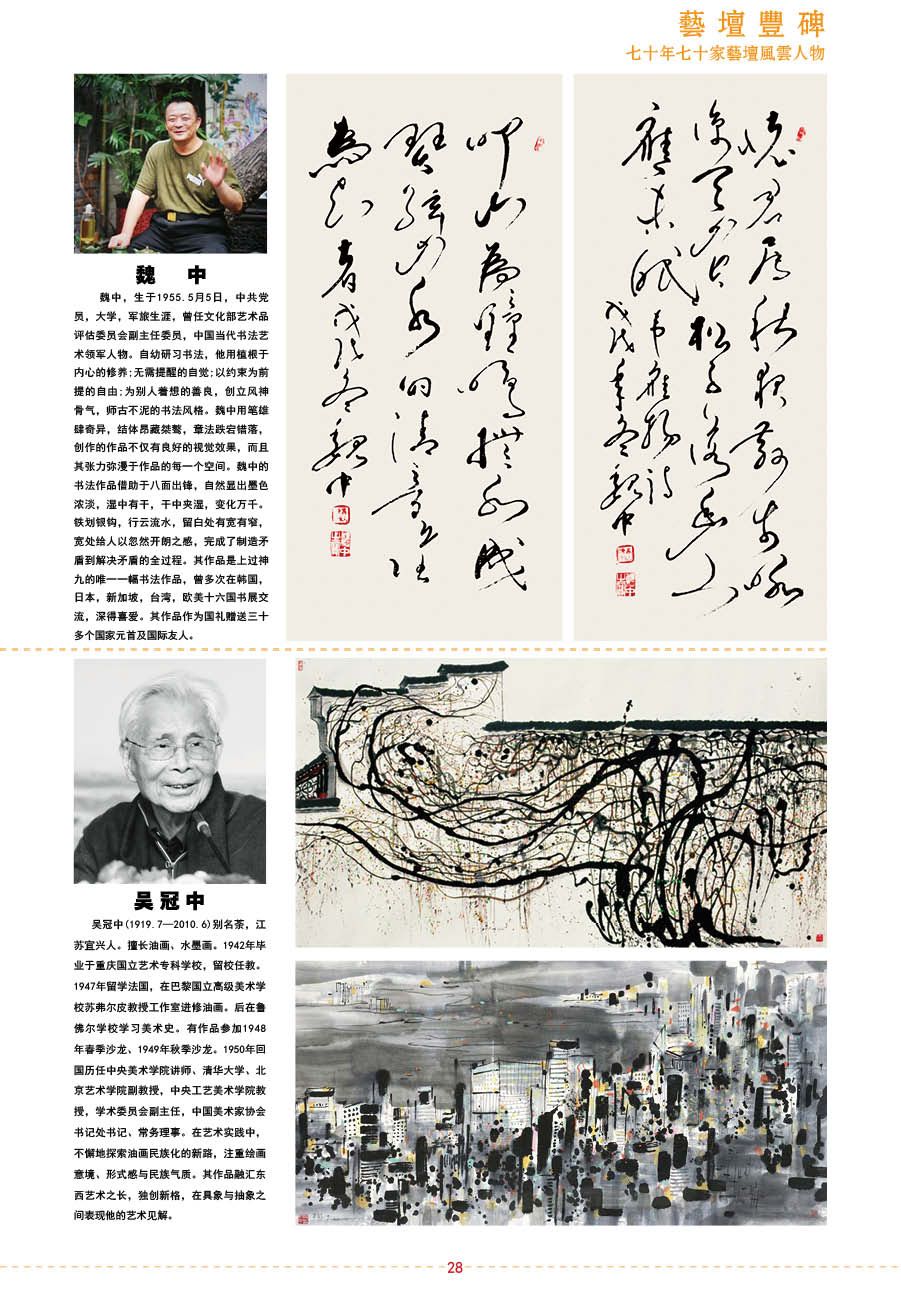 藝壇豐碑
七十年七十家藝壇風雲人物
魏 中
魏中，生于1955.5月5日，中共党
员，大学，军旅生涯，曾任文化部艺术品
评估委员会副主任委员，中国当代书法艺
术领军人物。自幼研习书法，他用植根于
内心的修养;无需提醒的自觉;以约束为前
提的自由;为别人着想的善良，创立风神
骨气，师古不泥的书法风格。魏中用笔雄
肆奇异，结体昂藏桀骜，章法跌宕错落，
创作的作品不仅有良好的视觉效果，而且
其张力弥漫于作品的每一个空间。魏中的
书法作品借助于八面出锋，自然显出墨色
浓淡，湿中有干，干中夹湿，变化万千。
铁划银钩，行云流水，留白处有宽有窄，
宽处给人以忽然开朗之感，完成了制造矛
盾到解决矛盾的全过程。其作品是上过神
九的唯一一幅书法作品，曾多次在韩国，
日本，新加坡，台湾，欧美十六国书展交
流，深得喜爱。其作品作为国礼赠送三十
多个国家元首及国际友人。
怀君属秋夜散步咏
凉天空山松子落幽人
應未眠韦應物詩
戊戌年冬魏中
吴冠中
吴冠中(1919.7—2010.6)别名荼，江
苏宜兴人。擅长油画、水墨画。1942年毕
业于重庆国立艺术专科学校，留校任教。
1947年留学法国，在巴黎国立高级美术学
校苏弗尔皮教授工作室进修油画。后在鲁
佛尔学校学习美术史。有作品参加1948
年春季沙龙、1949年秋季沙龙。1950年回
国历任中央美术学院讲师、清华大学、北
京艺术学院副教授，中央工艺美术学院教
授，学术委员会副主任，中国美术家协会
书记处书记、常务理事。在艺术实践中，
不懈地探索油画民族化的新路，注重绘画
意境、形式感与民族气质。其作品融汇东
西艺术之长，独创新格，在具象与抽象之
间表现他的艺术见解。
28